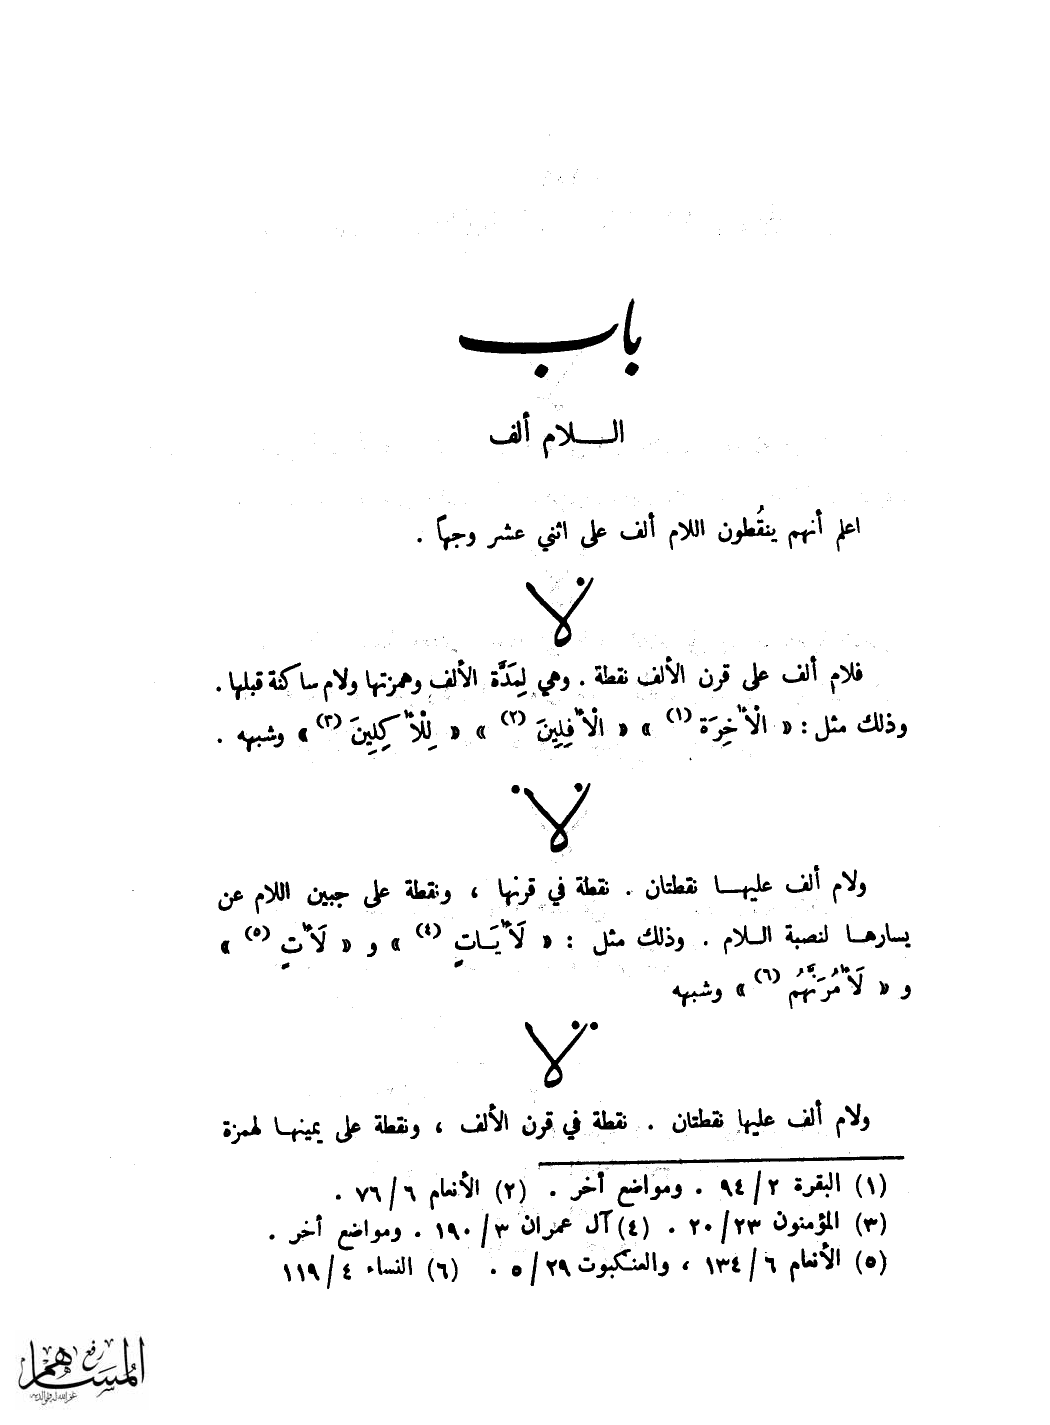 باب
الـــلام ألف
اعلم أنهم ينقُطون اللام ألف على اثني عشر وجهاً .
لا
فلام ألف على قرن الألف نقطة . وهي لِمَدَّة الألف وهمزتها ولام ساكنة قبلها .
وذلك مثل : « الْأَخِرَة (١) » « الْأَفِلِينَ (٢) » « لِلْأَكِلِينَ (٣) » وشبهه .
لا
ولام ألف عليهـــا نقطتان . نقطة في قرنها ، ونقطة على جبين اللام عن
يسارهـا لنصبة الـلام . وذلك مثل : « لَأَيَـاتٍ (٤) » و « لَأَتٍ (٥) »
و « لَأَمُرَنَّهُم (٦) » وشبهه
لا
ولام ألف عليها نقطتان . نقطة في قرن الألف ، ونقطة على يمينهـا لهمزة
(١) البقرة ٢/ ٩٤ . ومواضع أخر . (٢) الأنعام ٦/ ٧٦ .
(٣) المؤمنون ٢٣/ ٢٠ . (٤) آل عمران ٣/ ١٩٠ . ومواضع أخر .
(٥) الأنعام ٦/ ١٣٤ ، والعنكبوت ٢٩/ ٥ . (٦) النساء ٤/ ١١٩
رفع
المساهم